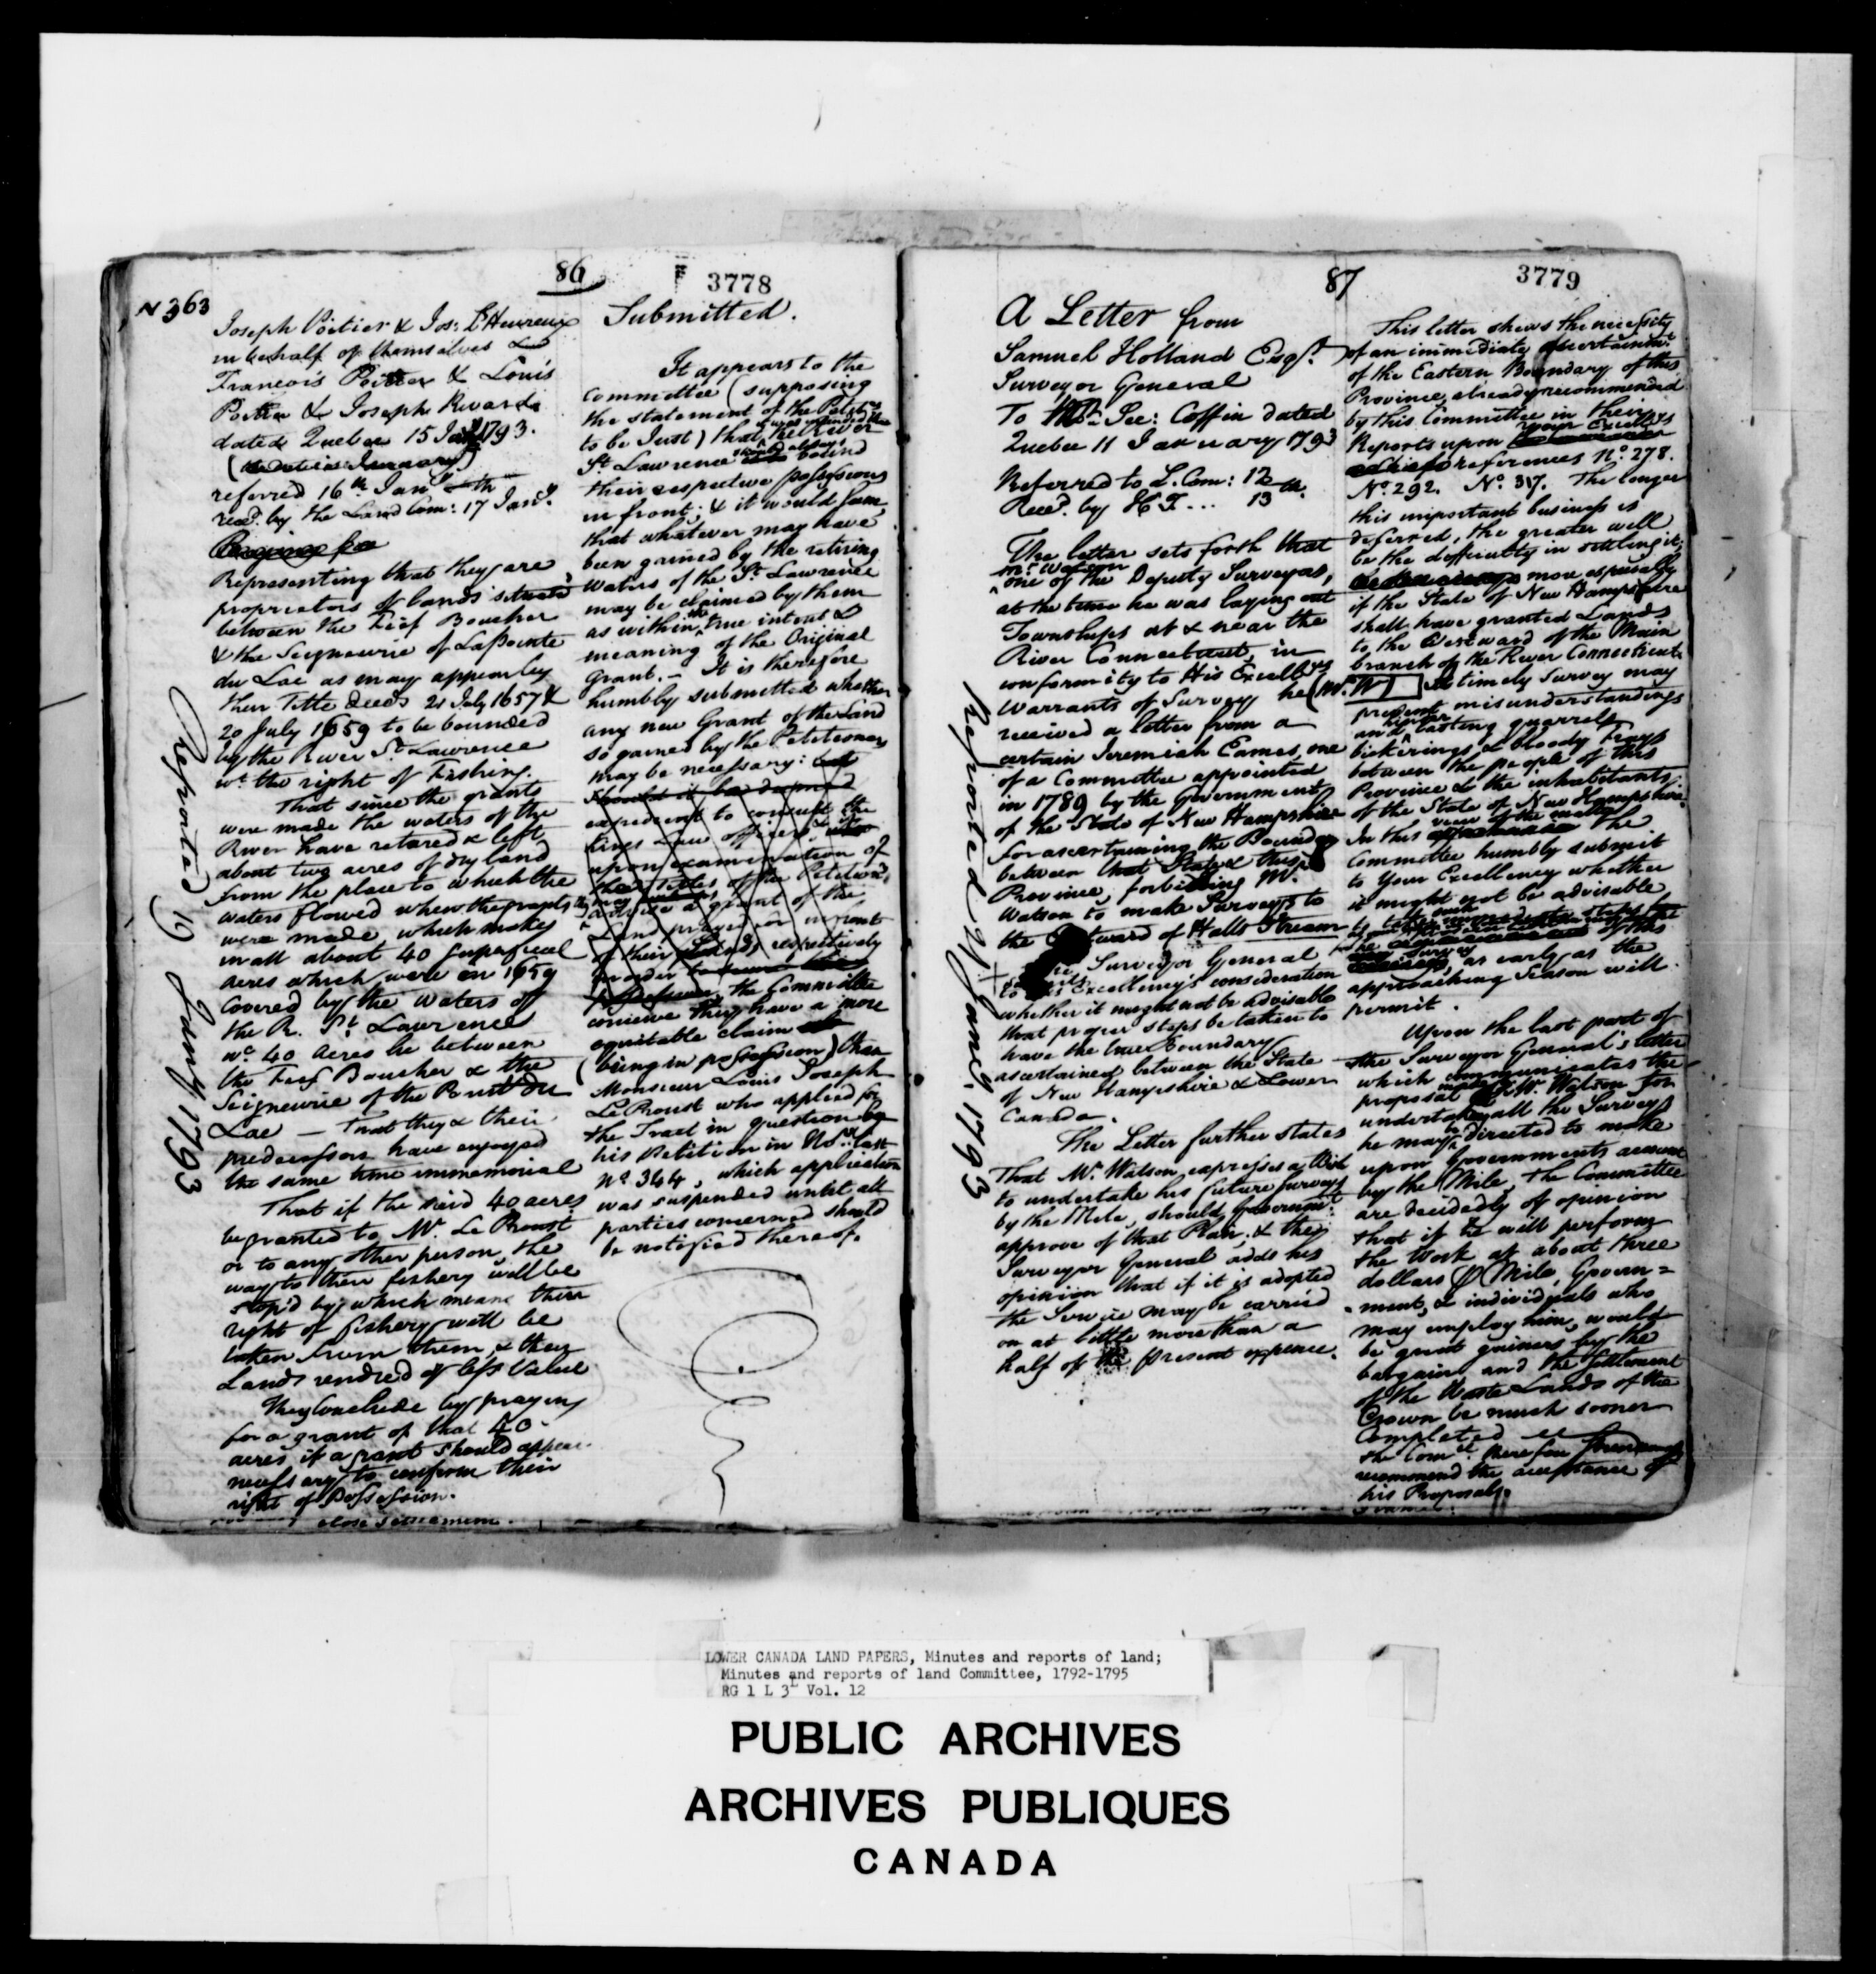 86
3778
N 363
Joseph Poitier & Jos: L'Heureux
in behalf of themselves &
Francois Poitier & Louis
Poitier & Joseph Rivard
dated Quebec 15 Jany 1793.
referred 16th Jany
recd. by the Land Com: 17 Jany.
Representing that they are
proprietors of lands situate
between the Fief Boucher
& the Seigneurie of La Pointe
du Lac as may appear by
their Title deeds 21 July 1657 &
20 July 1659 to be bounded
by the River St. Lawrence
wt. the right of Fishing.
That since the grants
were made the waters of the
River have retired & left
about two acres of dry land
from the place to which the
waters flowed when the grants
were made which makes
in all about 40 superficial
acres which were in 1659
covered by the waters of
the R. St Lawrence
wc. 40 acres lie between
the Fief Boucher & the
Seigneurie of the Pointe du
Lac — That they & their
predecessors have enjoyed
the same time immemorial
That if the said 40 acres
be granted to Mr. Le Proust
or to any other person, the
way to their fishery will be
stop'd by which means their
right of fishery will be
taken from them, & their
Lands rendred of less Value
They Conclude by praying
for a grant of that 40
acres, if a grant should appear
necessary to confirm their
right of Possession.
close settlement.
Reported 19 Jany 1793
Submitted.
It appears to the
Committee (supposing
the statement of the Petitrs
to be Just) that the River
St. Lawrence should always bound
their respective possessions
in front; & it would seem
that whatever may have
been gained by the retiring
Waters of the St. Lawrence
may be claimed by them
as within the true intent &
meaning of the Original
Grant. — It is therefore
humbly submitted whether
any new Grant of the Land
so gained by the Petitioners
may be necessary: but
should it be deemed
expedient to consult the
Kings Law officers &
upon examination of
their titles of the Petitionrs
advise a grant of the
Land prayed for in front
of their Lands respectively
the Committee
conceive they have a more
equitable claim
(being in possession) than
Monsieur Louis Joseph
Le Proust who applied for
the Tract in question by
his Petition in Novr. last
No. 344, which application
was suspended until all
parties concerned should
be notified thereof.
87
3779
A Letter from
Samuel Holland Esqr.
Surveyor General
To Mr. Sec: Coffin dated
Quebec 11 January 1793
Referred to L. Com: 12th
Recd. by H F... 13
The letter sets forth that
Mr. Watson
one of the Deputy Surveyors,
at the time he was laying out
Townships at & near the
River Connecticut, in
conformity to His Excellys
Warrants of Survey he (Mr. W)
received a letter from a
certain Jeremiah Eames, one
of a Committee appointed
in 1789 by the Government
of the State of New Hampshire
for ascertaining the Boundry
between that State & this
Province, forbidding Mr.
Watson to make Surveys to
the Eastward of Halls Stream
The Surveyor General
submits
to his Excellency's consideration
whether it might not be advisable
that proper steps be taken to
have the true Boundary
ascertained between the State
of New Hampshire & Lower
Canada.
The Letter further states
That Mr. Watson expresses a Wish
to undertake his future surveys
by the Mile, should Governmt.
approve of that Plan, & the
Surveyor General adds his
opinion that if it is adopted
the Service may be carried
on at little more than a
half of the present expence.
Reported 21 Jany. 1793
This letter shews the necessity
of an immediate ascertainmt.
of the Eastern Boundary of this
Province, already recommended
by this Committee in their
Reports upon your Excellys
references No. 278.
No. 292. No. 317. The longer
this important business is
deferred, the greater will
be the difficulty in settling it;
more especially
if the State of New Hampshire
shall have granted Lands
to the Westward of the Main
branch of the River Connecticut.
A timely Survey may
prevent misunderstandings
and hinder lasting quarrels,
bickerings & bloody frays
between the people of this
Province & the inhabitants
of the State of New Hampshire.
In this view of the matter The
Committee humbly submit
to Your Excellency whether
it might not be advisable
as early as the
approaching Season will
permit.
Upon the last part of
the Surveyor General's letter
which communicates the
proposal made by Mr. Watson for
undertaking all the Surveys
he may be directed to make
upon Governments account
by the Mile, the Committee
are decidedly of opinion
that if he will perform
the Work at about three
dollars P Mile, Govern=
=ment, & individuals who
may employ him, would
be great gainers by the
bargain, and the settlement
of the Waste Lands of the
Crown be much sooner
Completed
the Comee. therefore
recommend the acceptance of
his Proposals.
LOWER CANADA LAND PAPERS, Minutes and reports of land;
Minutes and reports of land Committee, 1792-1795
RG 1 L 3L Vol. 12
PUBLIC ARCHIVES
ARCHIVES PUBLIQUES
CANADA